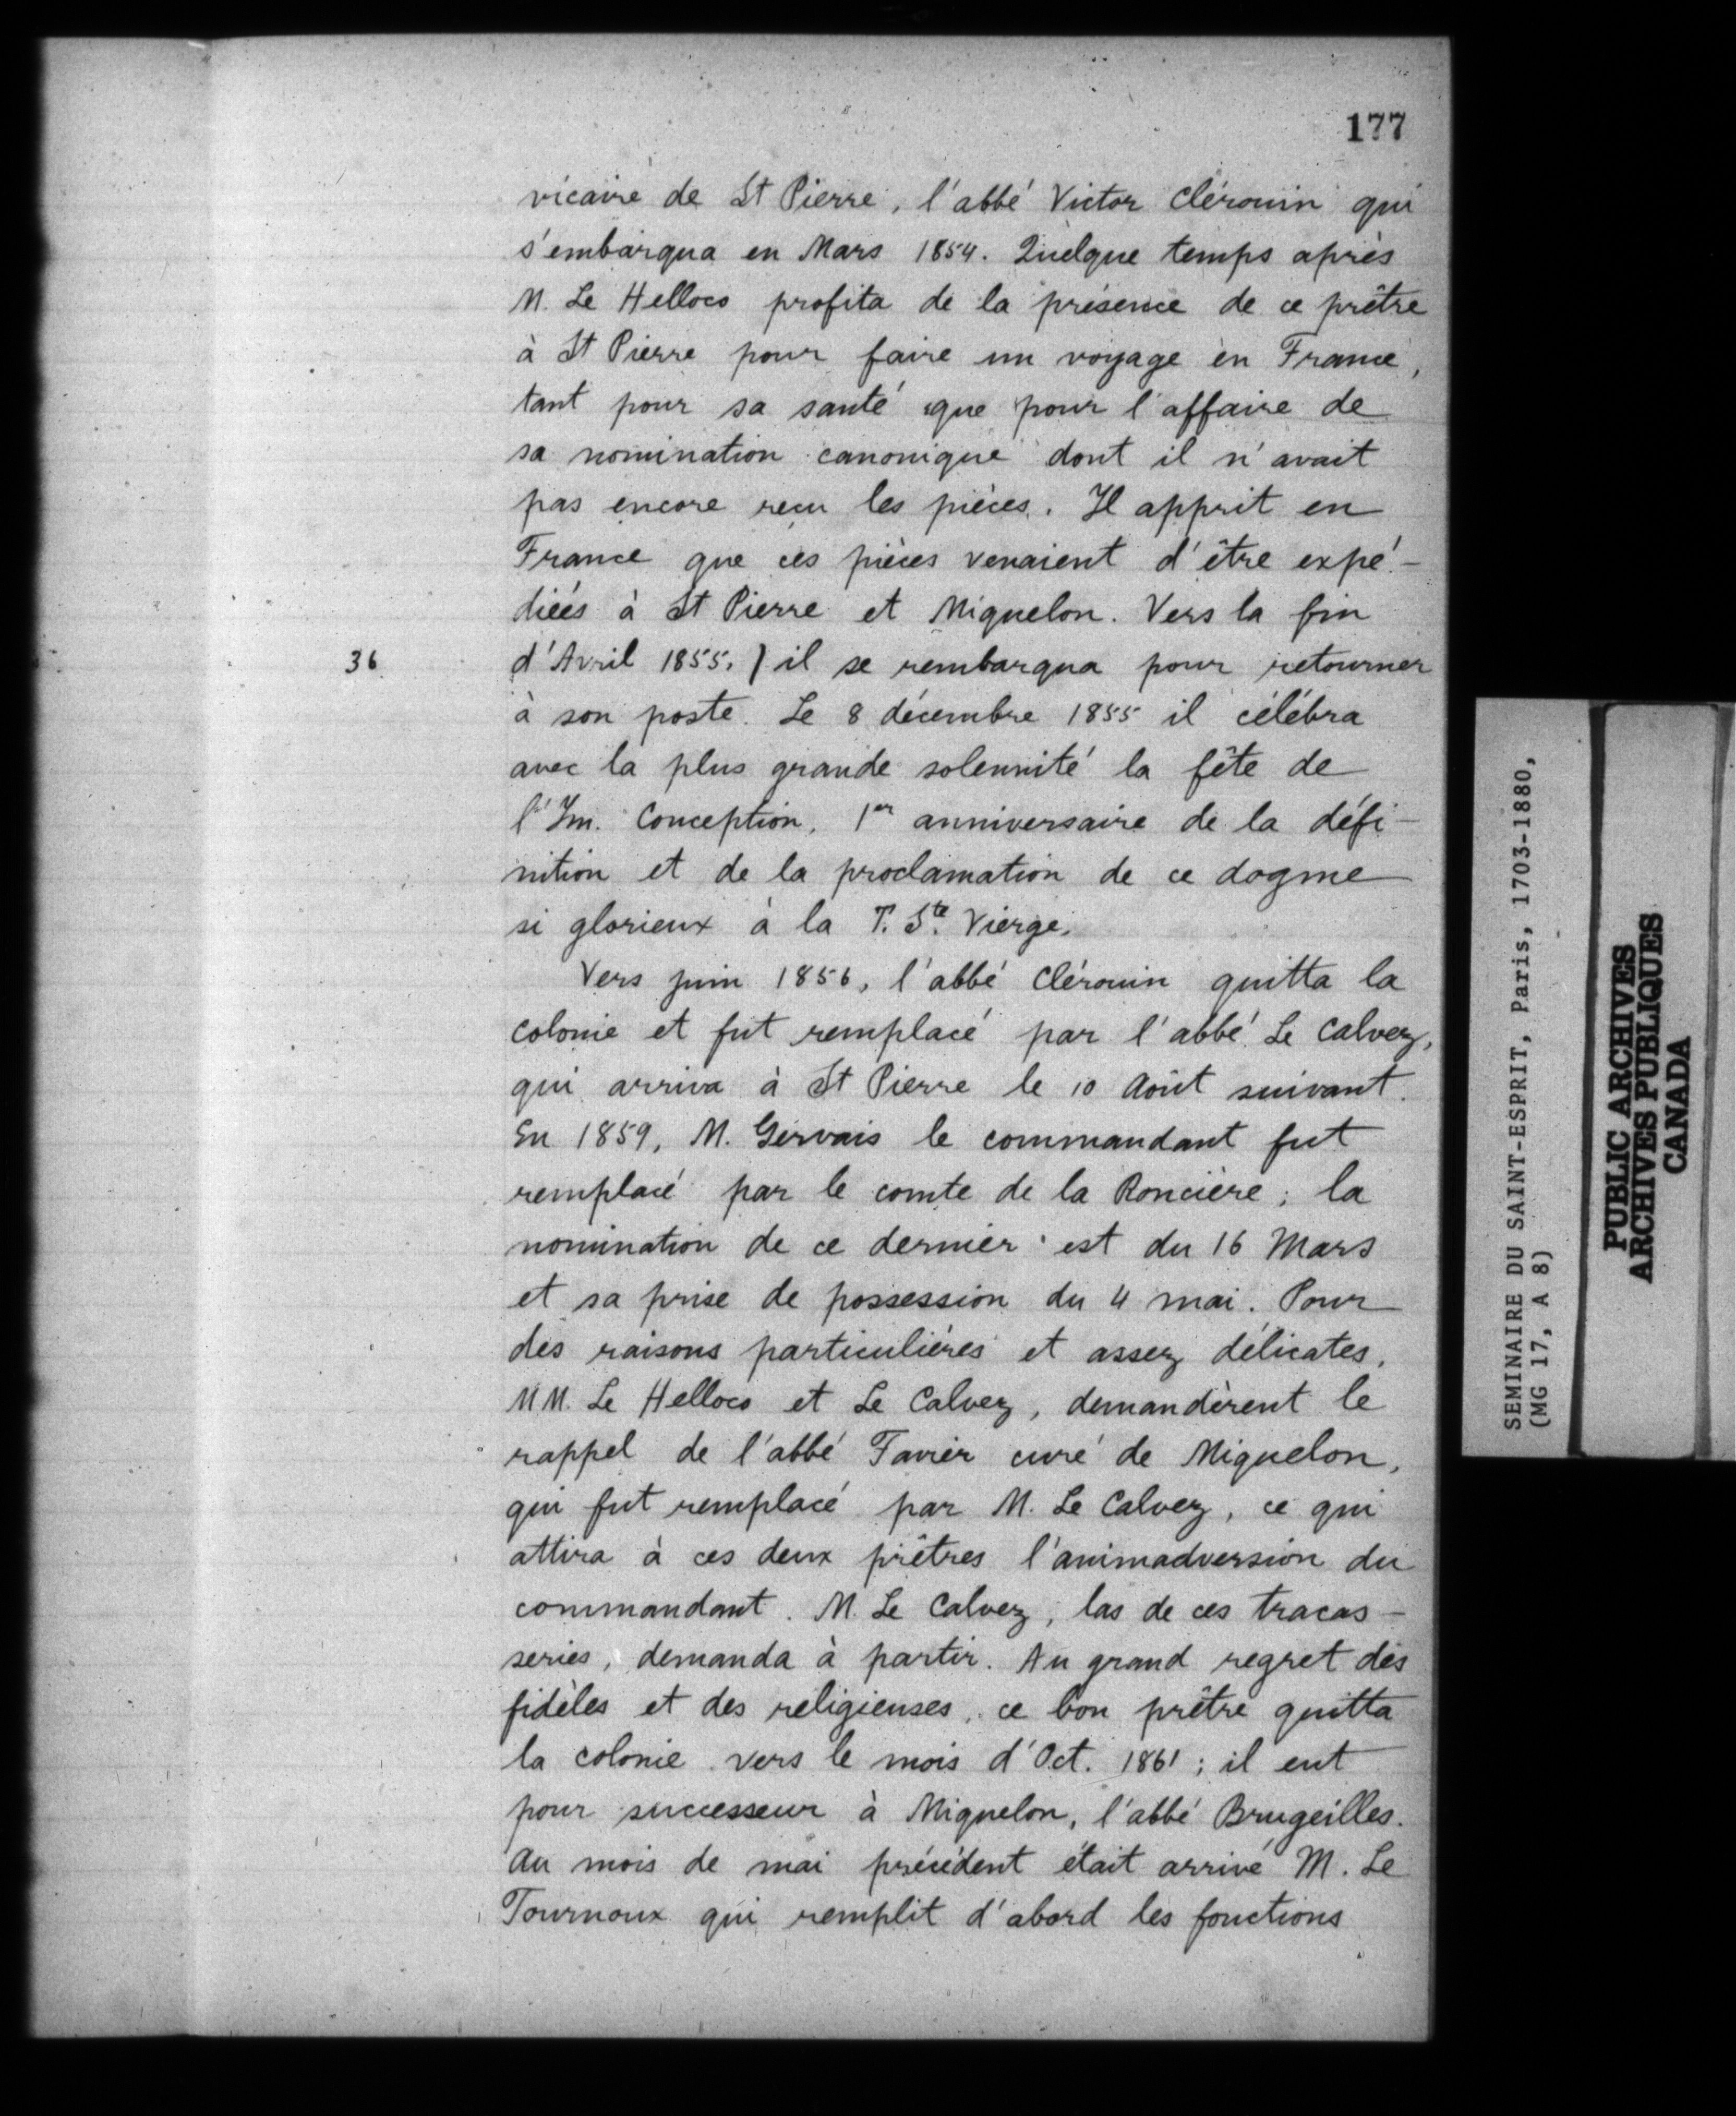 177
vicaire de St Pierre, l'abbé Victor Clérouin qui
s'embarqua en Mars 1854. Quelque temps après
M. Le Helloco profita de la présence de ce prêtre
à St Pierre pour faire un voyage en France,
tant pour sa santé que pour l'affaire de
sa nomination canonique dont il n'avait
pas encore reçu les pièces. Il apprit en
France que ces pièces venaient d'être expé-
diées à St Pierre et Miquelon. Vers la fin
36 d'Avril 1855, ) il se rembarqua pour retourner
à son poste. Le 8 décembre 1855 il célébra
avec la plus grande solennité la fête de
l'Im. Conception, 1er anniversaire de la défi-
nition et de la proclamation de ce dogme
si glorieux à la T. Ste Vierge.
Vers juin 1856, l'abbé Clérouin quitta la
colonie et fut remplacé par l'abbé Le Calvez,
qui arriva à St Pierre le 10 Août suivant.
En 1859, M. Gervais le commandant fut
remplacé par le comte de la Roncière; la
nomination de ce dernier est du 16 Mars
et sa prise de possession du 4 mai. Pour
des raisons particulières et assez délicates,
MM. Le Helloco et Le Calvez, demandèrent le
rappel de l'abbé Favier curé de Miquelon,
qui fut remplacé par M. Le Calvez, ce qui
attira à ces deux prêtres l'animadversion du
commandant. M. Le Calvez, las de ces tracas-
series, demanda à partir. Au grand regret des
fidèles et des religieuses, ce bon prêtre quitta
la colonie vers le mois d'Oct. 1861; il eut
pour successeur à Miquelon, l'abbé Brugeilles.
Au mois de mai précédent était arrivé M. Le
Tournoux qui remplit d'abord les fonctions
SEMINAIRE DU SAINT-ESPRIT, Paris, 1703-1880,
(MG 17, A 8)
PUBLIC ARCHIVES
ARCHIVES PUBLIQUES
CANADA